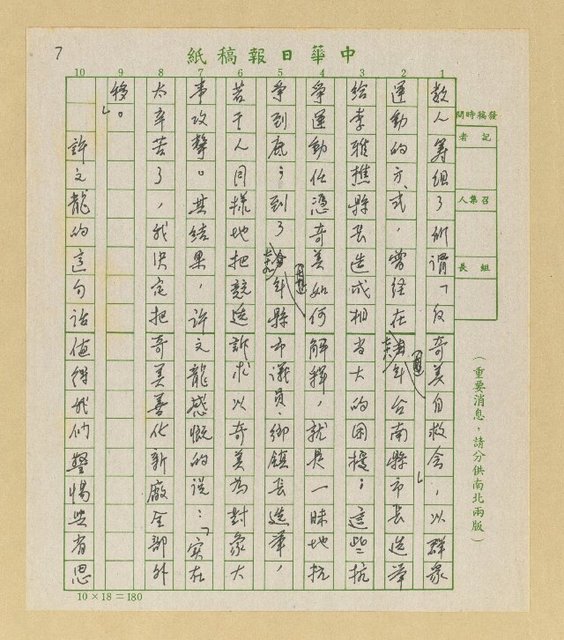 7
中華日報稿紙
發稿時間
記者
召集人
組長
(重要消息,請分供南北兩版)
1 2 3 4 5 6 7 8 9 10
數人籌組了所謂「反奇美自救會」,以群眾
運動的方式,曾經在年台南縣市長選舉
給李雅樵縣長造成相當大的困擾;這些抗
爭運動任憑奇美如何解釋,就是一昧地抗
爭到底;到了年縣市議員、鄉鎮長選舉,
若干人同樣地把競選訴求以奇美為對象大
事攻擊。其結果,許文龍感慨的說:「實在
太辛苦了,我決定把奇美善化新廠全部外
移。」
許文龍的這句話值得我們警惕與省思
10×18=180